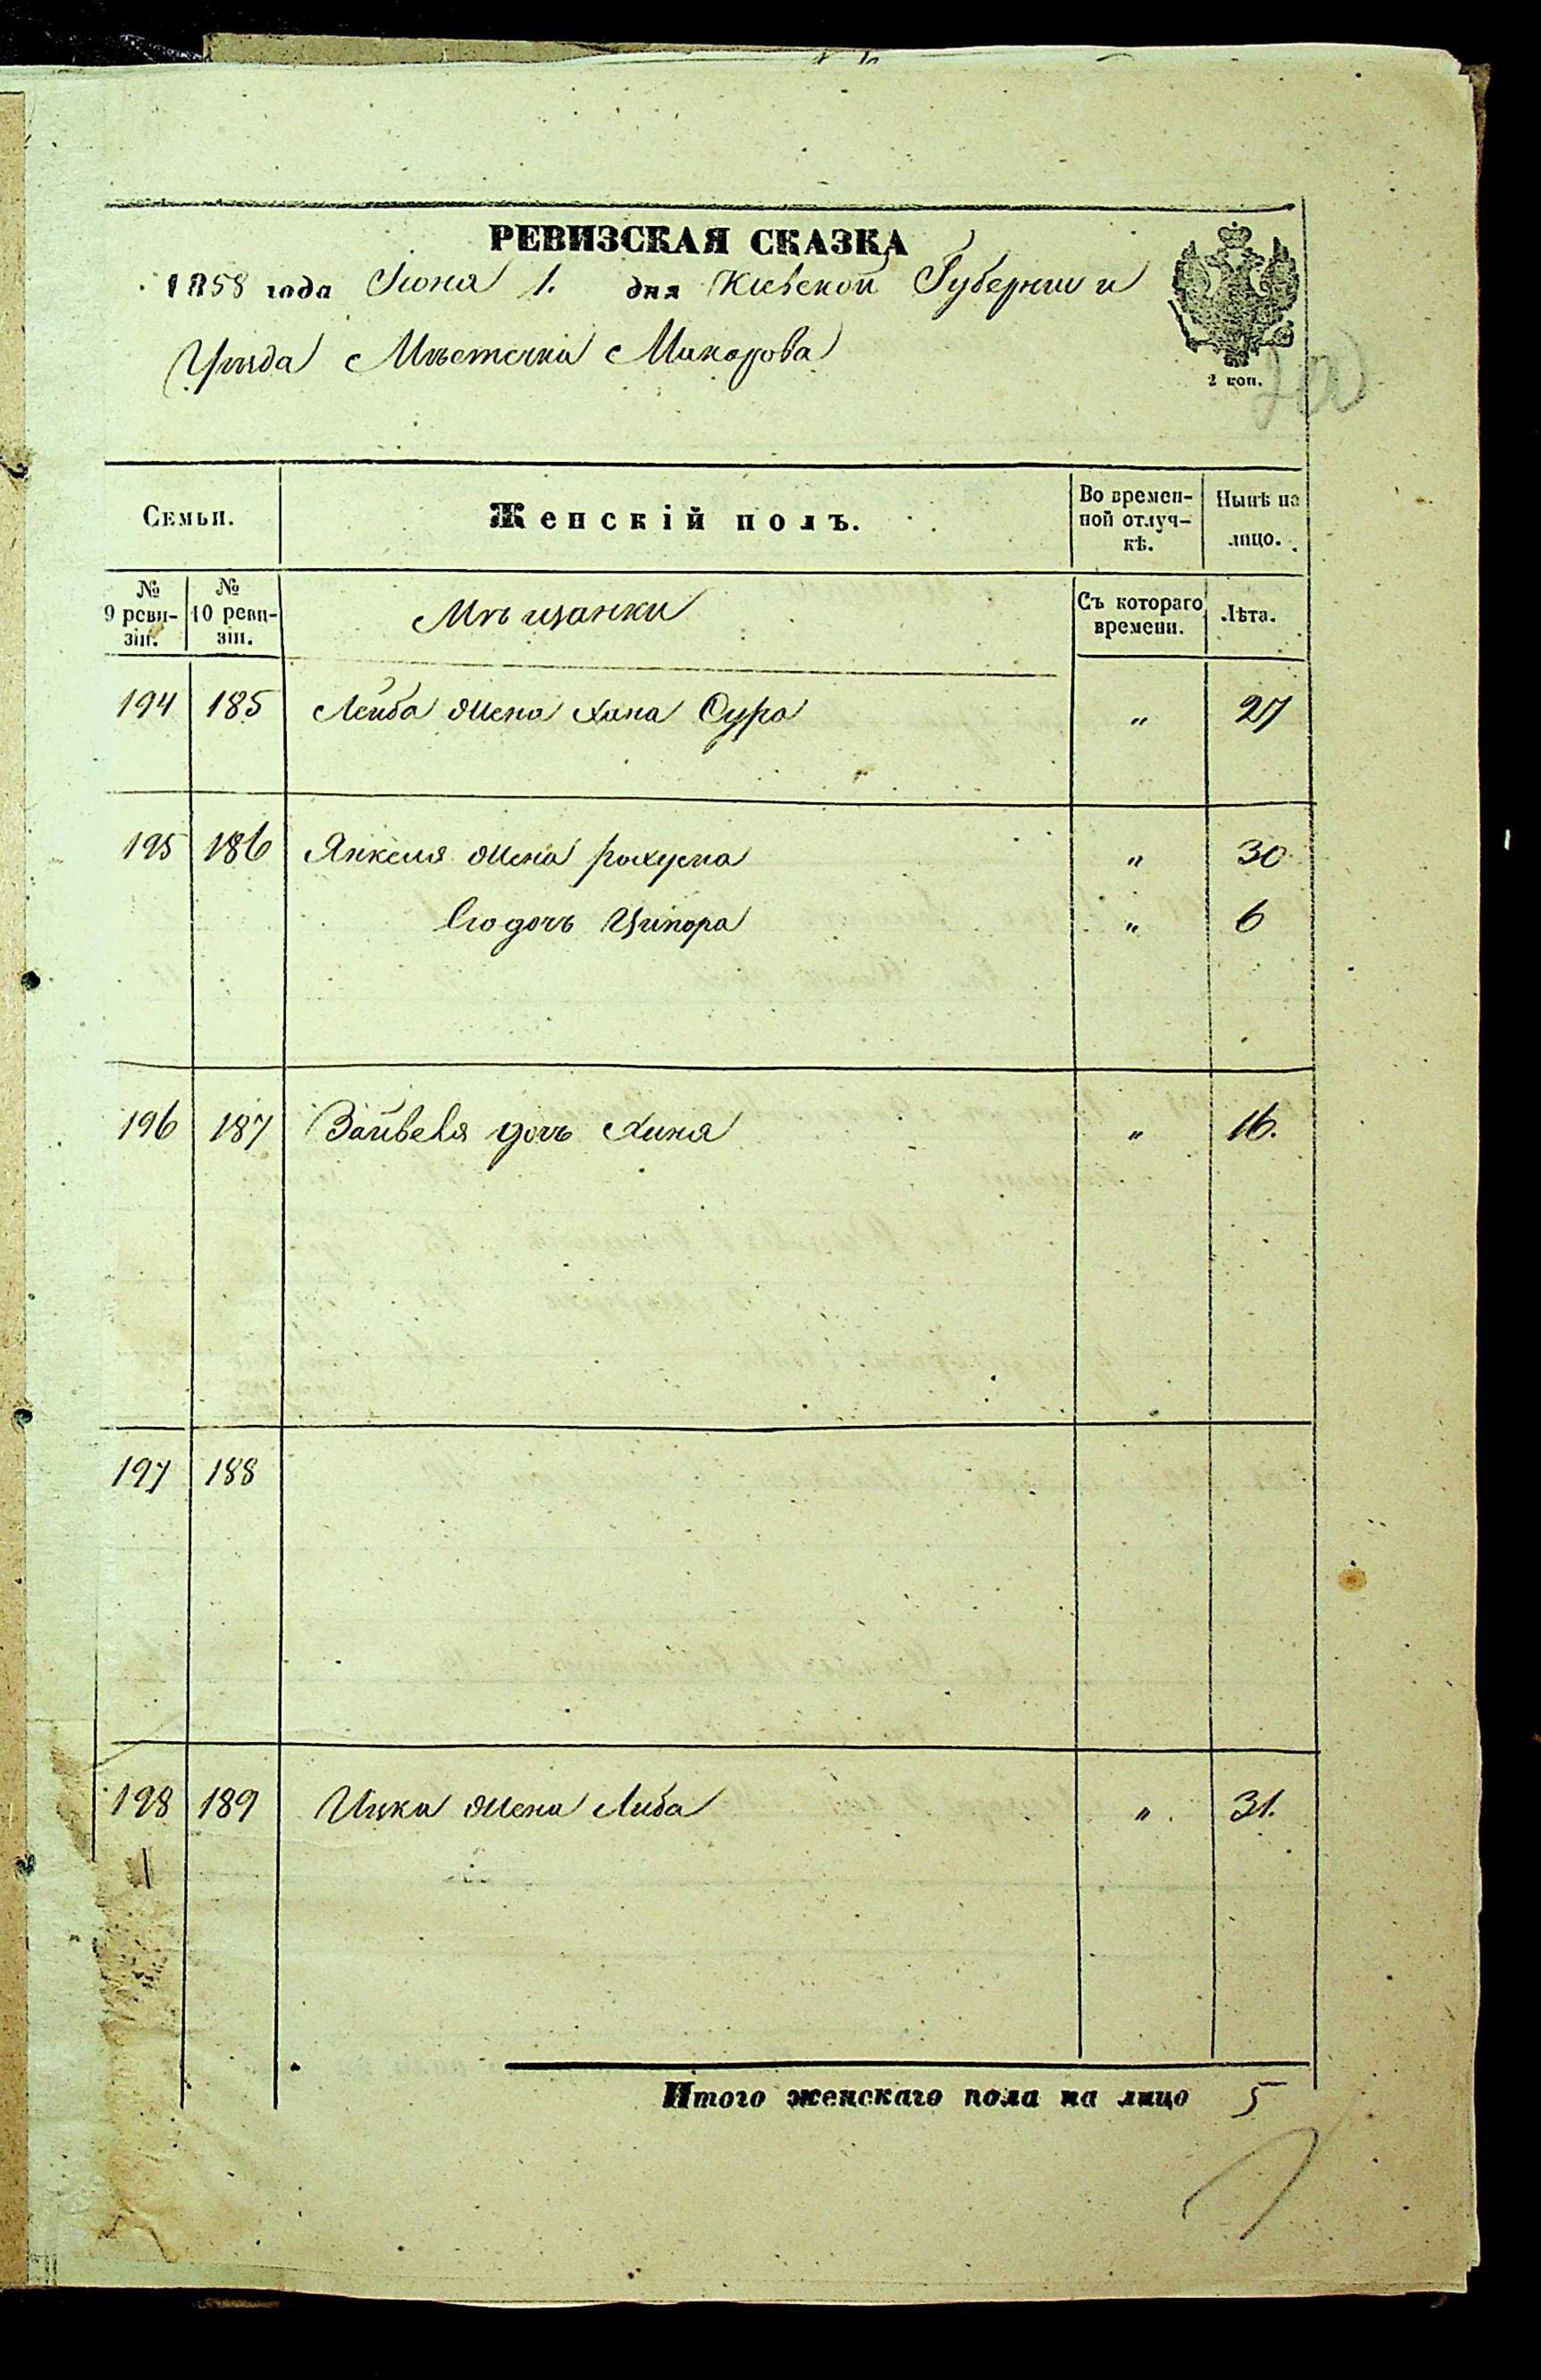 РЕВИЗСКАЯ СКАЗКА
1858 года Іюня 1. дня Кіевской Губерніи и
Уѣзда Мѣстечка Макарова
2 коп.
Семьи. Женскій полъ. Во времен- Нынѣ на
ной отлуч- лицо.
кѣ.
№ № Мѣщанки Съ котораго Лѣта.
9 реви- 10 реви- времени.
зіи. зіи.
194 185 Лейба жена Хана Сура " 27
195 186 Янкеля жена Рахума " 30
Его дочь Ципора " 6
196 187 Зайвеля дочь Хина " 16.
197 188
198 189 Ицка жена Либа " 31.
Итого женскаго пола на лицо 5